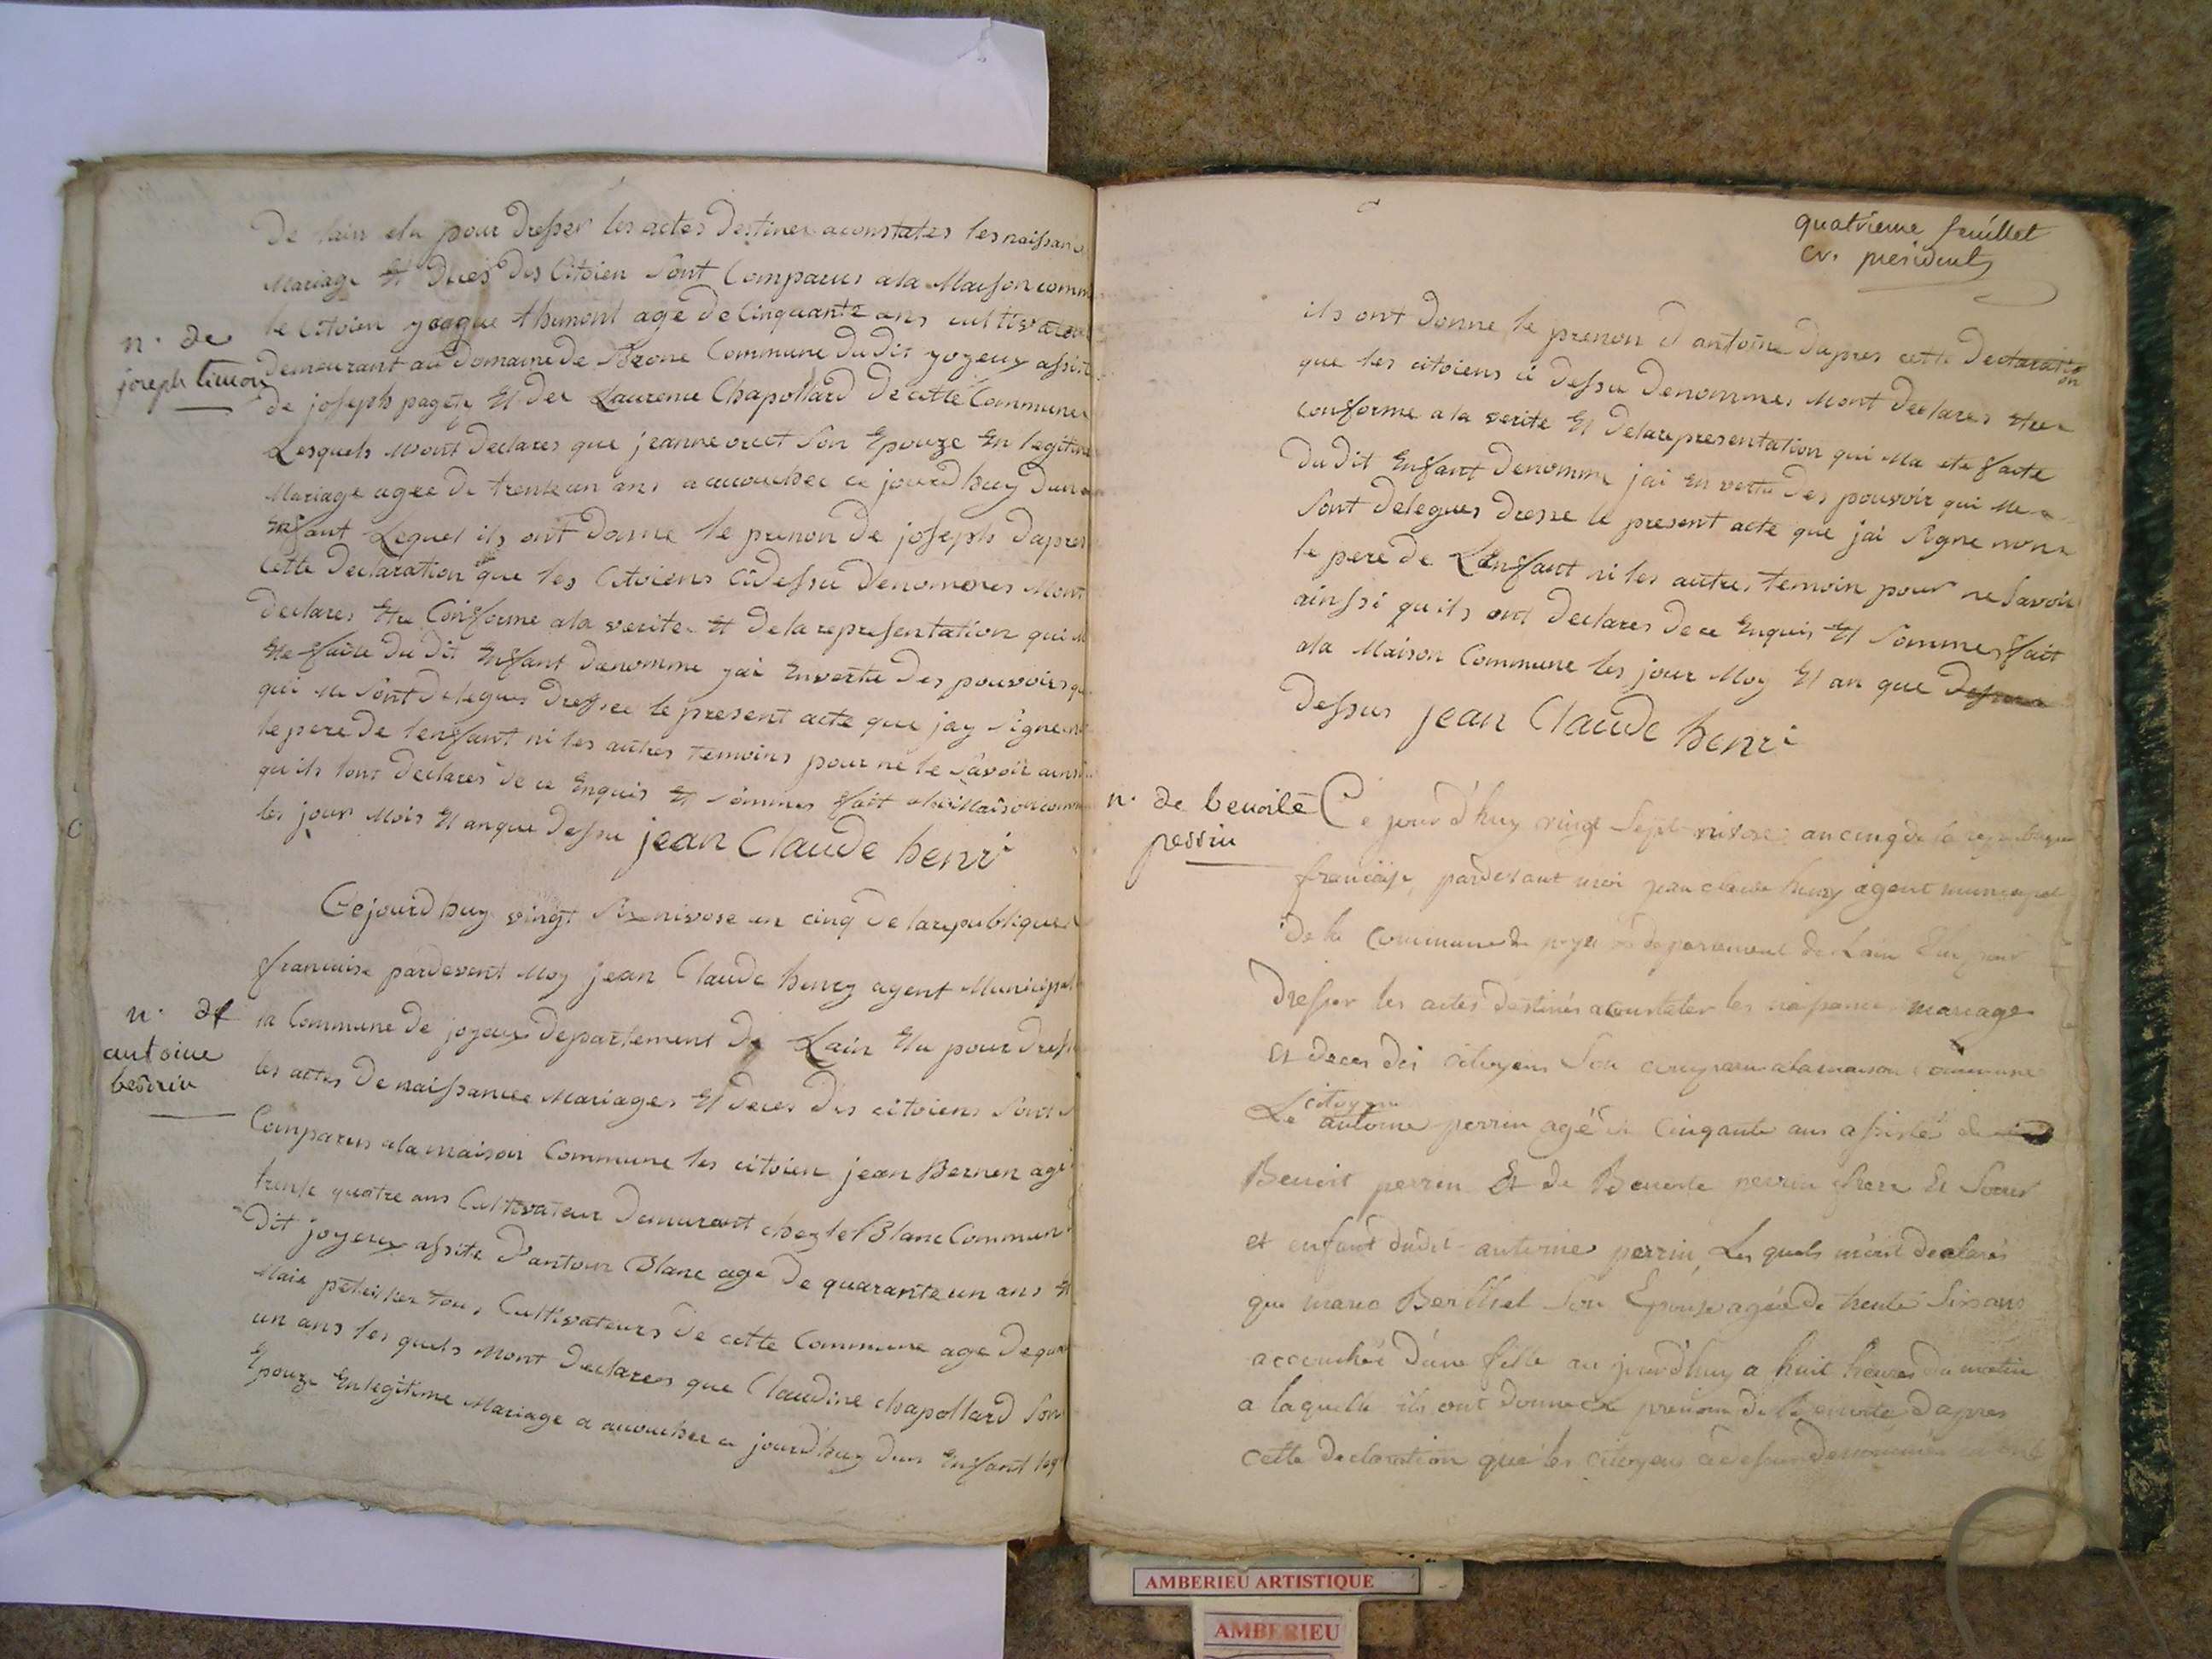 De lain elu pour Dresser les actes Destiner aconstates les naissance
Mariage Et Deces Des Citoien Sont Comparus ala Maison comm
le Citoien yoaque thimont age De Cinquante ans cultivateur
n. de
joseph timon
Demeurant au Domaine De Commune Du Dit yoyeux assite
De joseph pagety Et der Laurence Chapollard De cette Commune
Lesquels Mont Declares que jeanne oruet Son Epouze En legitime
Mariage agee De trente un ans a accouchee ce jourd huy Dun
Enfant Lequel ils ont Donne le prenon De joseph Dapres
Cette Declaration que les Citoiens CiDessu Denommes Mont
Declares Etre Conforme ala verite Et De la representation qui M
Ete faite Du Dit Enfant Denomme jai Envertu Des pouvoirs qu
qui Me Sont Delegues Dressee le present acte que jay Signe
le pere De lenfant ni les autres temoins pour ne le Savoir ainsi
qu ils lont Declares De ce Enquis Et Sommes fait ala Maison comm
les jour Mois Et anque Dessu jean Claude henri
Cejourdhuy vingt Six nivose an cinq De la republique
francaise pardevent Moy jean Claude henry agent Municipal
n. de
antoine
bernin
la Commune De joyeux Departement De Lain Elu pour Dress
les actes De naissance Mariages Et Deces Des citoiens Sont
Comparus ala maison Commune les citoien jean Bernen age
trente quatre ans Cultivateur Demeurant chez le Blanc Commun
Dit joyeux assite Dantoin Blanc age De quarante un ans Et
Mais tous Cultivateurs De cette Commune age De quar
un ans les quels Mont Declares que Claudine chapollard Son
Epouze Enlegitime Mariage a accouchee ce jourdhuy Dun Enfant leq
quatrieme feuillet
cv. president
ils ont Donne le prenon d antoine Dapres cette Declaration
que les citoiens ci Dessu Denommes Mont Declares Etre
conforme a la verite Et Delarepresentation qui Ma ete faite
Du Dit Enfant Denomme jai En vertu Des pouvoir qui Me
Sont Delegues Dresse le present acte que jai Signe non
le pere De Lenfant ni les autres temoin pour ne Savoir
ainssi qu ils ont Declares De ce Enquis Et Sommes fait
ala Maison Commune les jour Moy Et an que
Dessus jean Claude henri
n. de benoite
perrin
Ce jourd'huy vingt Sept nivose an cinq de la republique
francaise, pardevant moi jean claude henry agent municipal
De la commune de joyeux departement de Lain Elu pour
Dresser les actes destinés a constater les naissance mariage
et deces des citoyens Son comparu a la maison commune
Le citoyen antoine perrin agé de cinqante ans assisté de
Benoit perrin Et de Benoite perrin frere Et Soeur
et enfant dudit antoine perrin, Les quels m'ont declarés
que marie Berthet Son Epouse agée de trente Six ans
accouchée d'une fille au jourd'huy a huit heures du matin
a laquelle ils ont donné le prenom de Benoite d'apres
cette declaration que les citoyens ci dessus denommés
AMBERIEU ARTISTIQUE
AMBERIEU